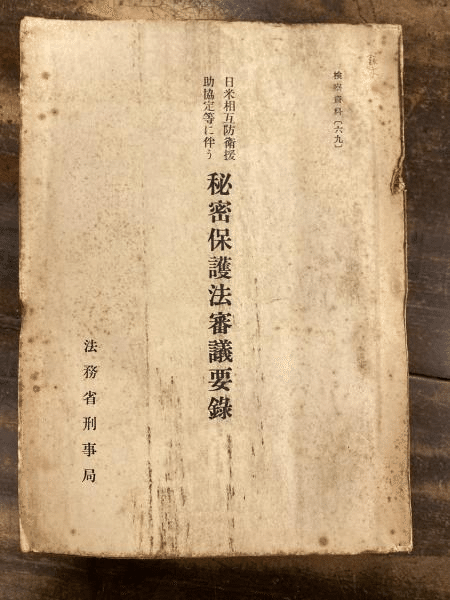 検察資料〔六九〕
日米相互防衛援
助協定等に伴う
秘密保護法審議要録
法務省刑事局